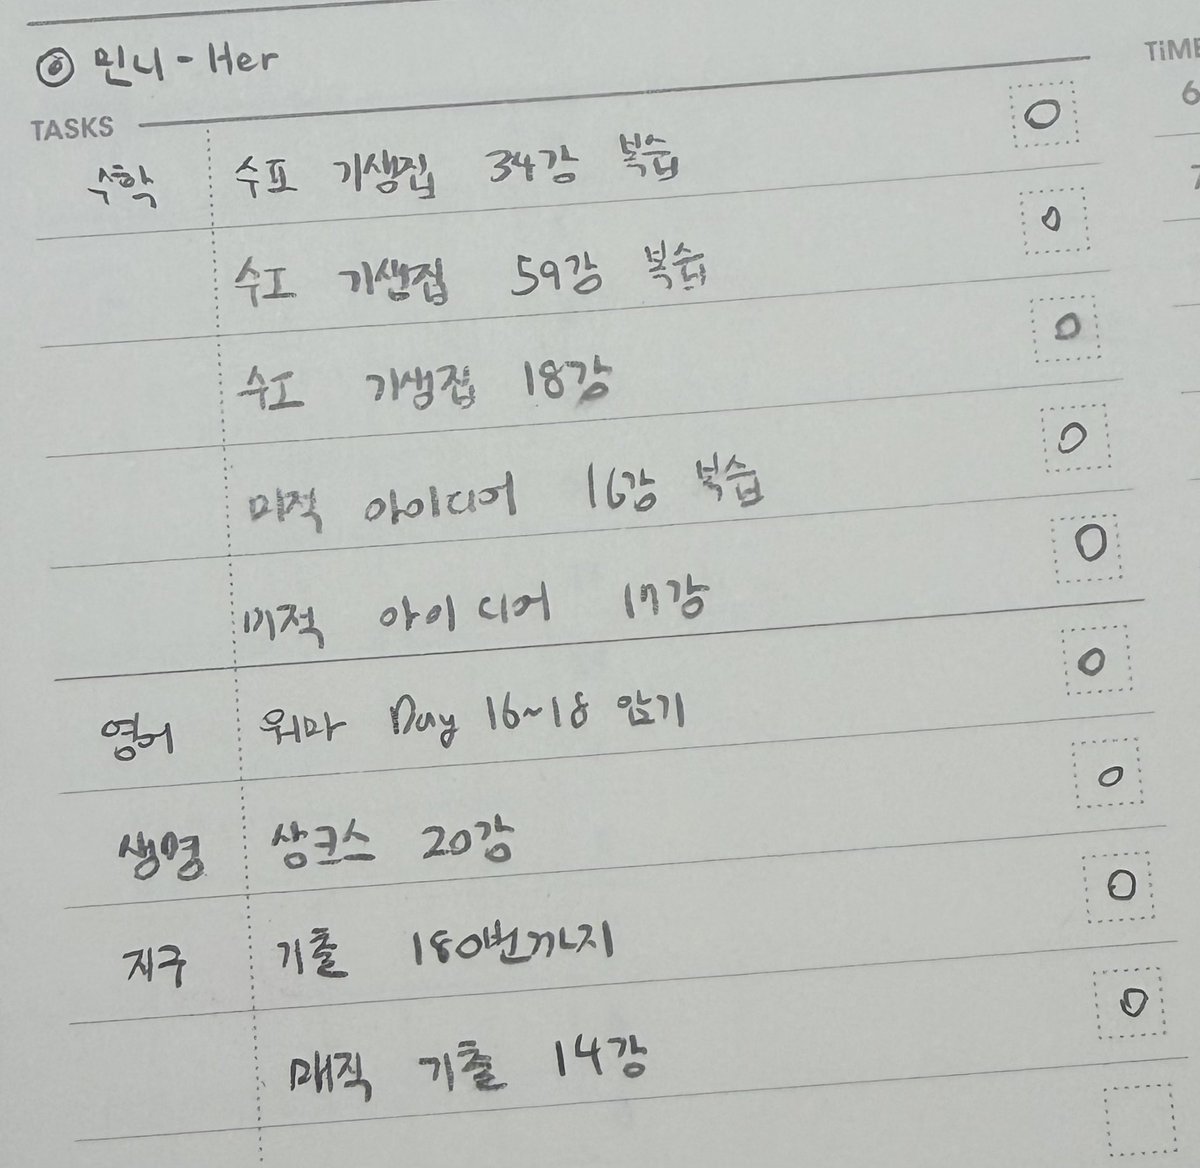 ◎ 민니 - Her
TASKS
TIME
6
7
수학 수포 기생집 34강 복습 O
수포 기생집 59강 복습 O
수포 기생집 18강 O
미적 아이디어 16강 복습 O
미적 아이디어 17강 O
영어 워마 Day 16~18 암기 O
생명 상크스 20강 O
지구 기출 180번까지 O
매직 기출 14강 O